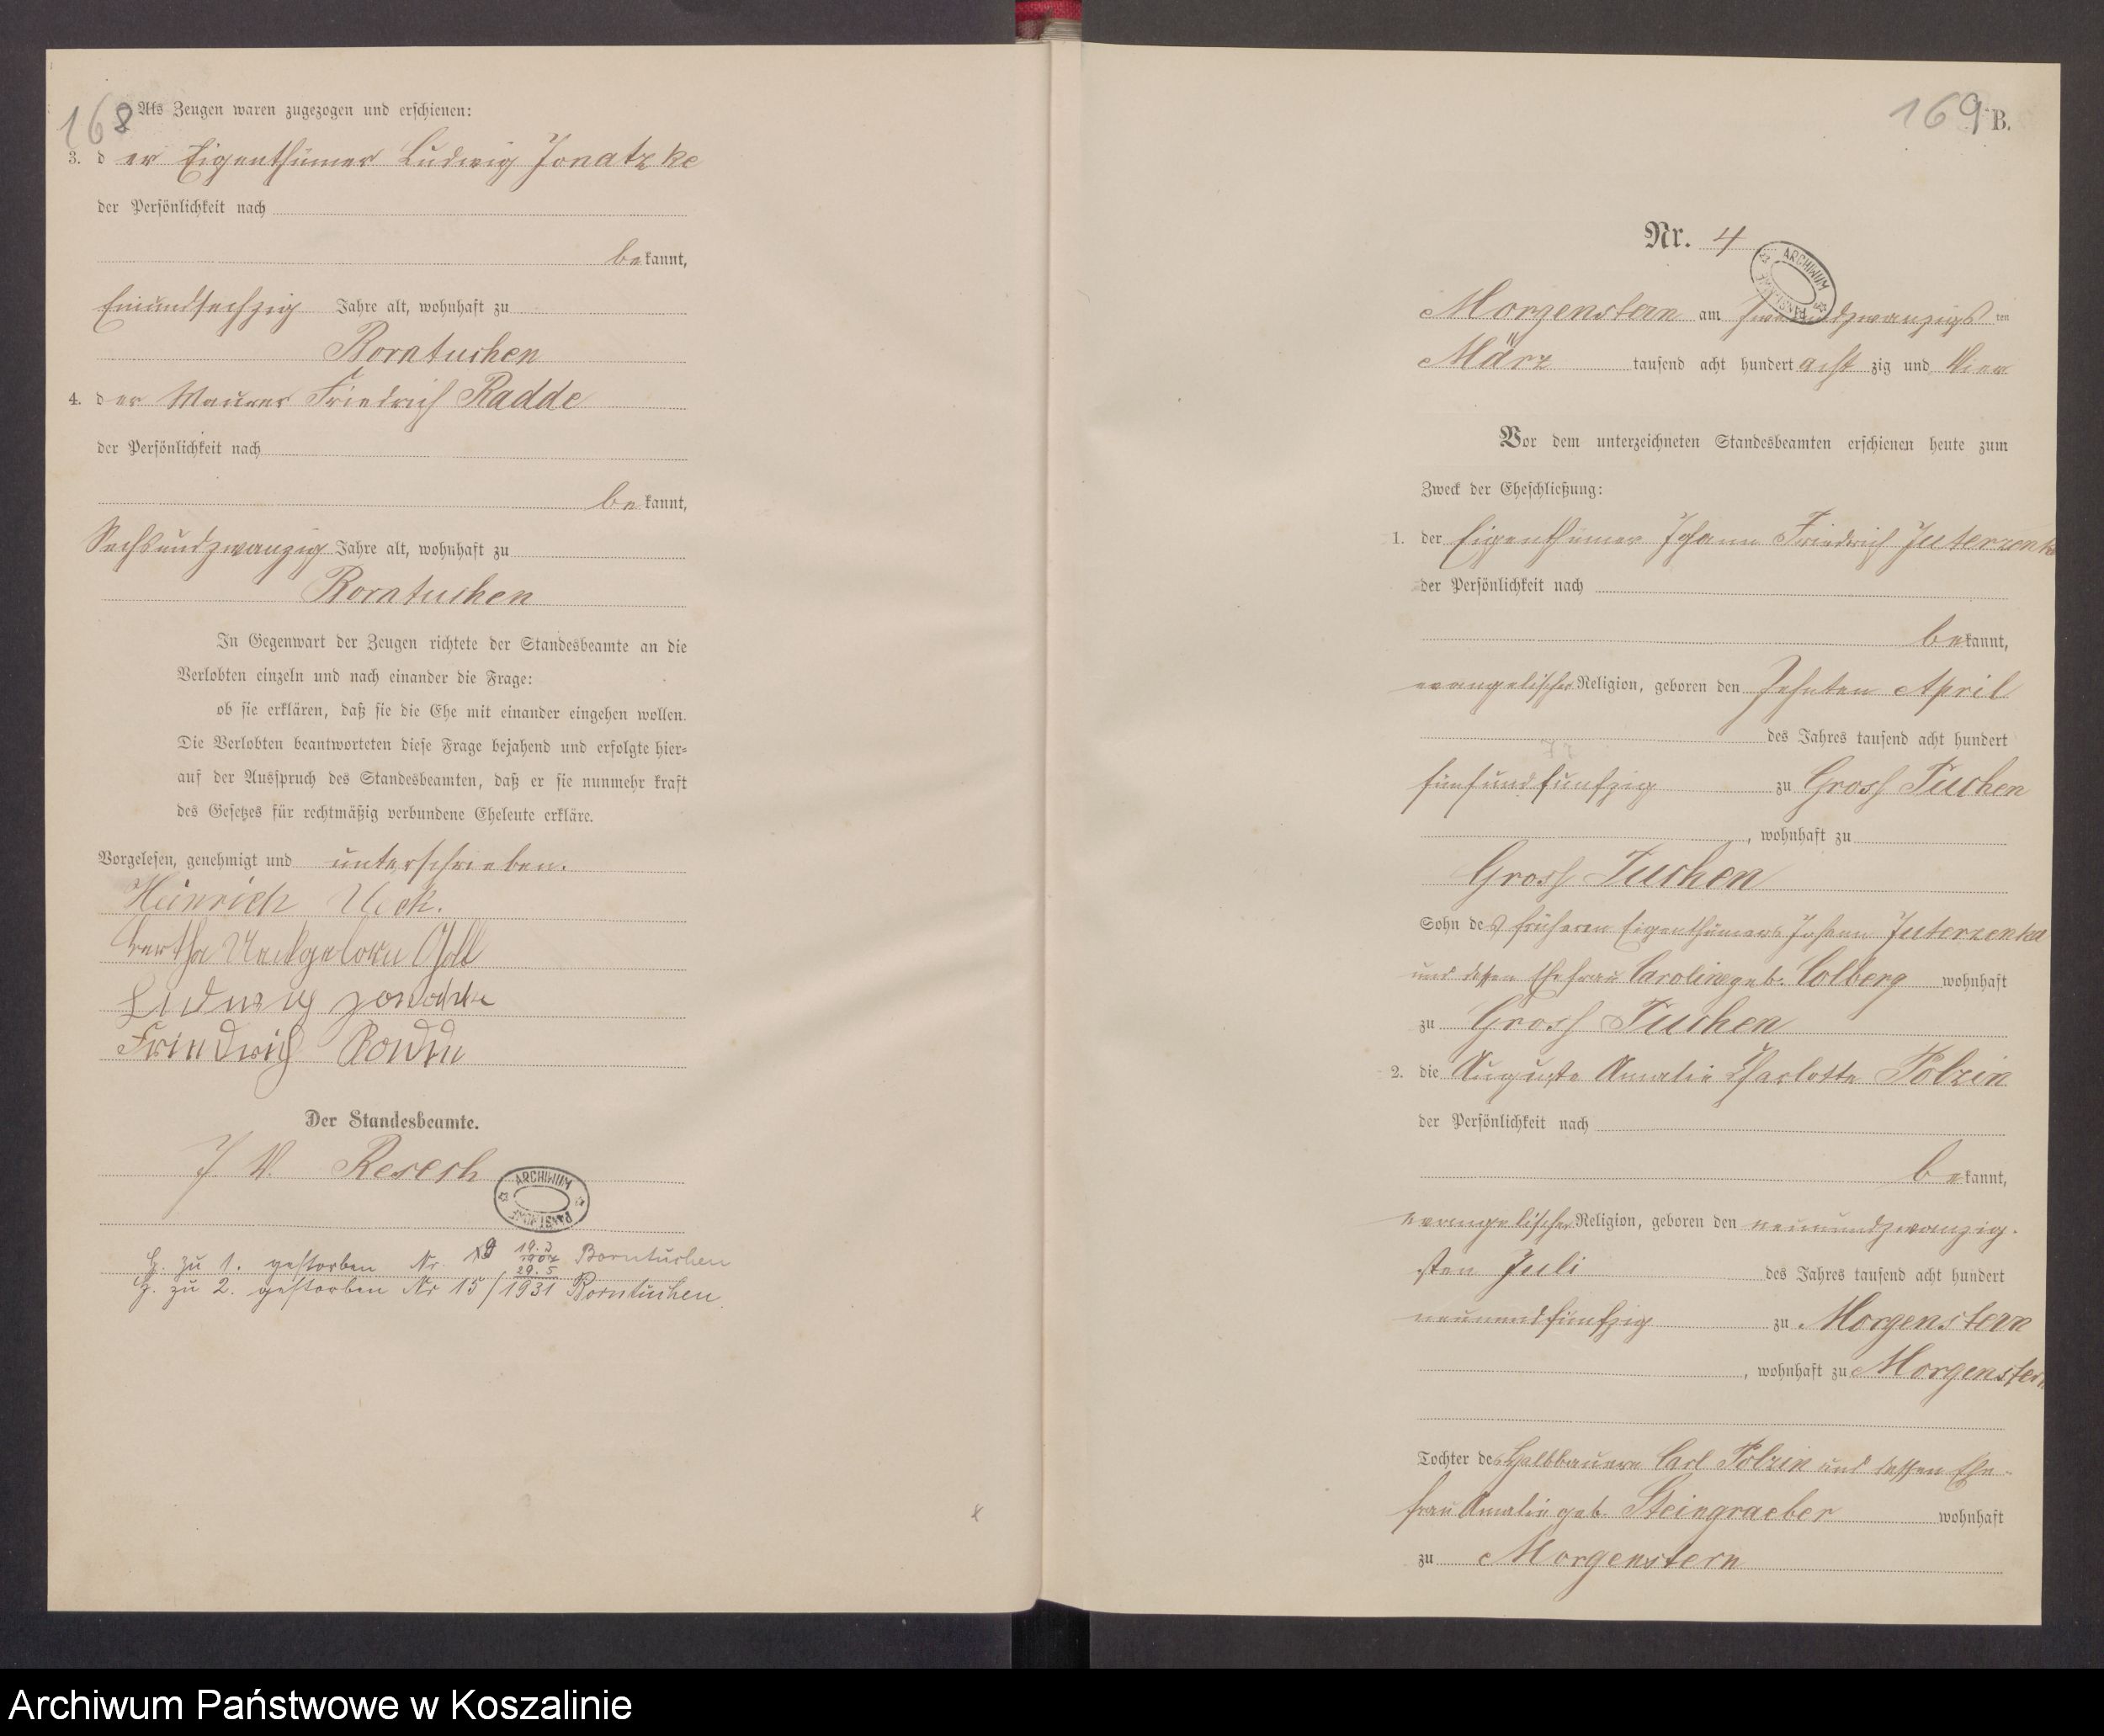 168
Als Zeugen waren zugezogen und erschienen:
3. der Eigenthümer Ludwig Jonatzke
der Persönlichkeit nach
bekannt,
Einundsechzig Jahre alt, wohnhaft zu
Borntuchen
4. der Maurer Friedrich Radde
der Persönlichkeit nach
bekannt,
Sechsundzwanzig Jahre alt, wohnhaft zu
Borntuchen
In Gegenwart der Zeugen richtete der Standesbeamte an die
Verlobten einzeln und nach einander die Frage:
ob sie erklären, daß sie die Ehe mit einander eingehen wollen.
Die Verlobten beantworteten diese Frage bejahend und erfolgte hier=
auf der Ausspruch des Standesbeamten, daß er sie nunmehr kraft
des Gesetzes für rechtmäßig verbundene Eheleute erkläre.
Vorgelesen, genehmigt und unterschrieben.
Heinrich
Bertha
Ludwig
Friedrich
Der Standesbeamte.
J. V. Resech
ARCHIWUM
zu 1. gestorben Nr. 19 Borntuchen
zu 2. gestorben Nr 15/1931 29.5 Borntuchen
169 B.
Nr. 4
ARCHIWUM
Morgenstern am Zweiundzwanzigsten
März tausend acht hundert achtzig und Vier
Vor dem unterzeichneten Standesbeamten erschienen heute zum
Zweck der Eheschließung:
1. der Eigenthümer Johann Friedrich Juterzenka
der Persönlichkeit nach
bekannt,
evangelischer Religion, geboren den Zehnten April
des Jahres tausend acht hundert
fünfundfünfzig zu Gross Tuchen
, wohnhaft zu
Gross Tuchen
Sohn des früheren Eigenthümers Johann Juterzenka
und dessen Ehefrau Caroline geb. Colberg wohnhaft
zu Gross Tuchen
2. die Auguste Amalie Charlotte Polzin
der Persönlichkeit nach
bekannt,
evangelischer Religion, geboren den neunundzwanzig-
sten Juli des Jahres tausend acht hundert
neunundfünfzig zu Morgenstern
, wohnhaft zu Morgenstern
Tochter des Halbbauern Carl Polzin und dessen Ehe-
frau Amalie geb. Steingraeber wohnhaft
zu Morgenstern
Archiwum Państwowe w Koszalinie